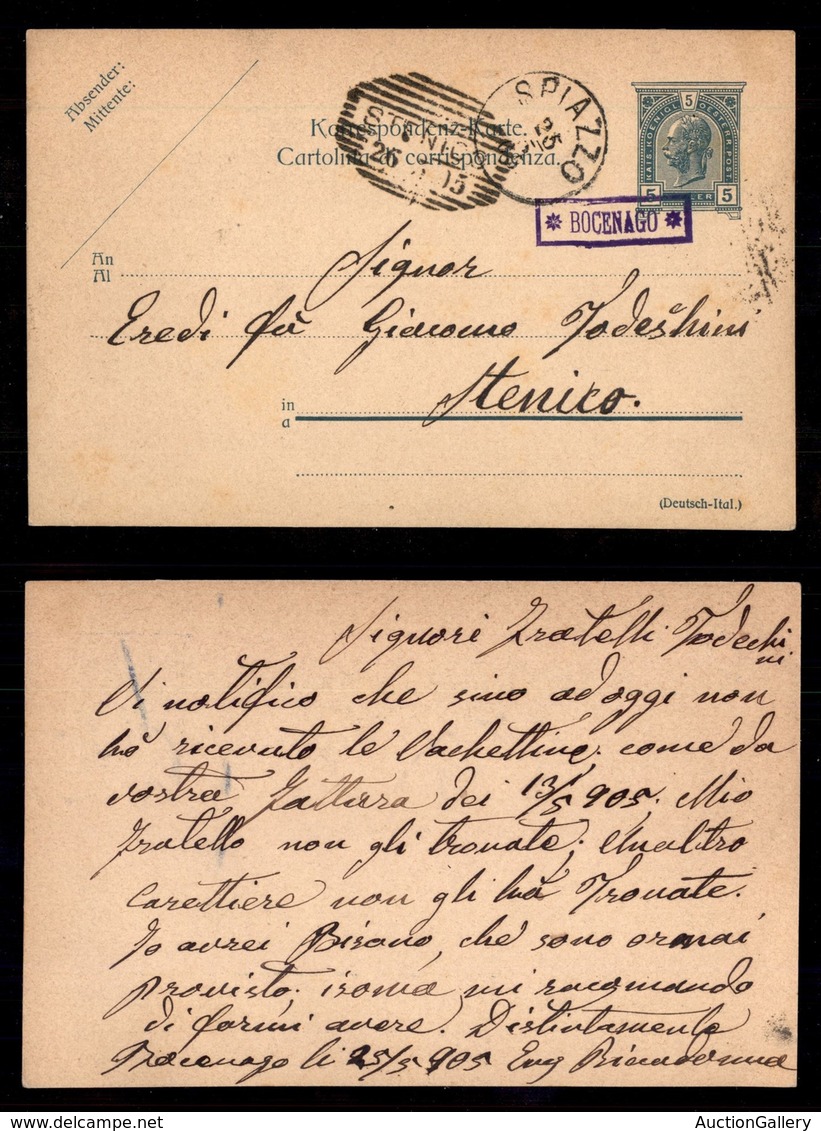 Absender:
Mittente:
Korrespondenz-Karte.
Cartolina di corrispondenza.
STENICO
26 05
SPIAZZO
25
5
KAIS. KOENIGL. OESTERR. POST
5 5
* BOCENAGO *
An
Al
Signor
Eredi fù Giacomo Todeshini
in
a
Stenico.
(Deutsch-Ital.)
Signori Fratelli Todechi
ni
Vi notifico che sino ad oggi non
hò ricevuto le Vachettine. come da
vostra Fattura dei 13/5 905. Mio
Fratello non gli trovate; Unaltro
Carettiere non gli hà Trovate.
Io avrei Bisono, chè sono oramai
provisto. mi racomando
di farmi avere. Distintamente
Bocenago li 25/5 905
AuctionGallery